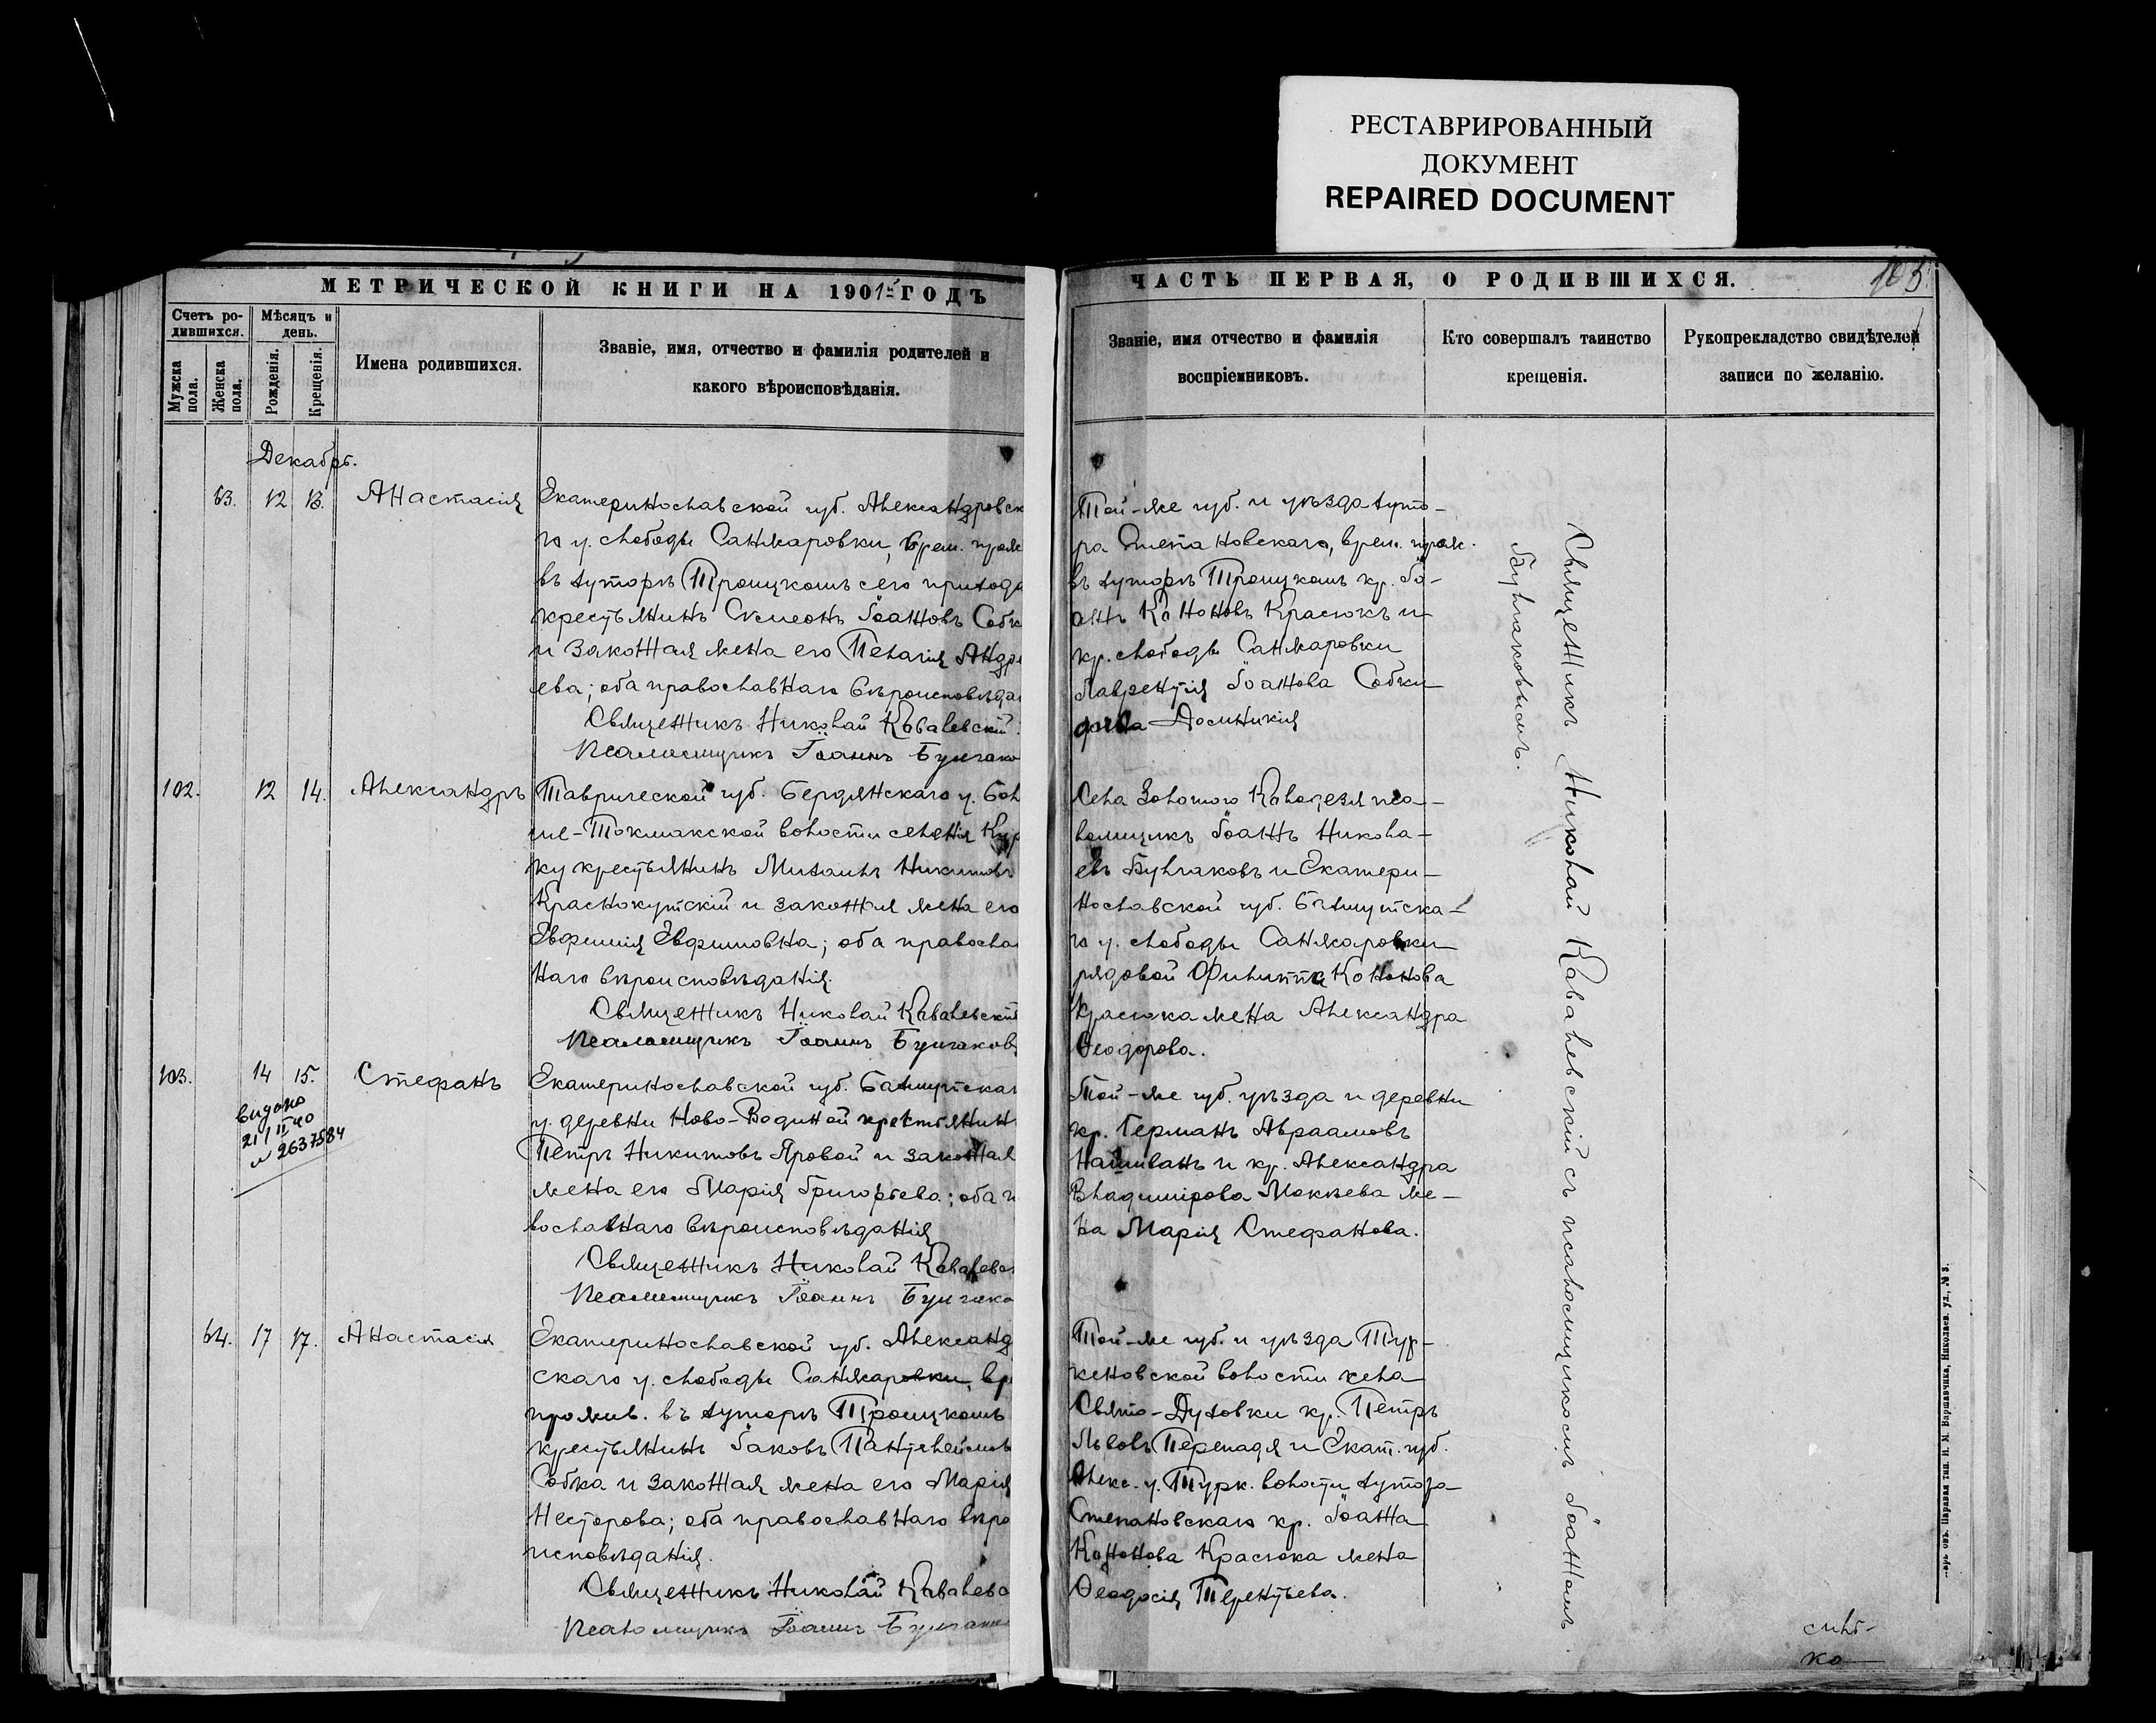 РЕСТАВРИРОВАННЫЙ
ДОКУМЕНТ
REPAIRED DOCUMENT
МЕТРИЧЕСКОЙ КНИГИ НА 1901 ГОДЪ
Счетъ ро-
дившихся.
Мужска
пола.
Женска
пола.
Мѣсяцъ и
день.
Рожденія.
Крещенія.
Имена родившихся.
Званіе, имя, отчество и фамилія родителей и
какого вѣроисповѣданія.
Декабрь.
63. 12 13. Анастасія
Екатеринославской губ. Александровск
го у. слободы Санжаровки, врем. прож
въ хуторѣ Троицкомъ сего прихода
крестьянинъ Симеонъ Іоанновъ Собк
и законная жена его Пелагія Андре
ева; оба православнаго вѣроисповѣда
Священникъ Николай Ковалевскій
Псаломщикъ Іоаннъ Булгако
102. 12 14. Александръ
Таврической губ. Бердянскаго у. Бол
ше-Токмакской волости селенія Кур
ку крестьянинъ Михаилъ Никитовъ
Краснокутскій и законная жена его
Евфимія Евфимовна; оба правосла
наго вѣроисповѣданія.
Священникъ Николай Ковалевскій
Псаломщикъ Іоаннъ Булгаковъ
103. 14 15. Стефанъ
видано
21/II 40
№ 2637584
Екатеринославской губ. Бахмутскаг
у. деревни Ново-Водиной крестьянин
Петръ Никитовъ Яровой и законная
жена его Марія Григорьева; оба п
вославнаго вѣроисповѣданія
Священникъ Николай Ковалевс
Псаломщикъ Іоаннъ Булгако
64. 17 17. Анастасія
Екатеринославской губ. Александ
скаго у. слободы Санжаровки, вр
прожив. въ хуторѣ Троицкомъ
крестьянинъ Іаковъ Пантелеимов
Собка и законная жена его Марія
Несторова; оба православнаго вѣро
исповѣданія.
Священникъ Николай Ковалевс
Псаломщикъ Іоаннъ Булгаков
ЧАСТЬ ПЕРВАЯ, О РОДИВШИХСЯ.
103
Званіе, имя отчество и фамилія
воспріемниковъ.
Кто совершалъ таинство
крещенія.
Рукоприкладство свидѣтелей
записи по желанію.
Той-же губ. и уѣзда хуто-
ра Степановскаго, врем. прож.
въ хуторѣ Троицкомъ кр. Іо-
анъ Кононовъ Красюкъ и
кр. слободы Санжаровки
Лаврентія Іоанова Собки
дочь Домникія
Села Золотого Колодезя пса-
ломщикъ Іоанъ Никола-
евъ Булгаковъ и Екатери-
нославской губ. Бахмутска-
го у. слободы Санжаровки
рядовой Филиппа Кононова
Красюка жена Александра
Ѳеодорова.
Той-же губ. уѣзда и деревни
кр. Германъ Авраамовъ
Нашиванъ и кр. Александра
Владимірова Мокѣева же-
на Марія Стефанова.
Той-же губ. и уѣзда Тур-
кеновской волости села
Свято-Духовки кр. Петръ
Львовъ Перепадя и Екат. губ.
Алекс. у. Турк. волости хутора
Степановскаго кр. Іоанна
Кононова Красюка жена
Ѳеодосія Терентьева.
Священникъ Николай Ковалевскій съ псаломщикомъ Іоанномъ
Булгаковымъ.